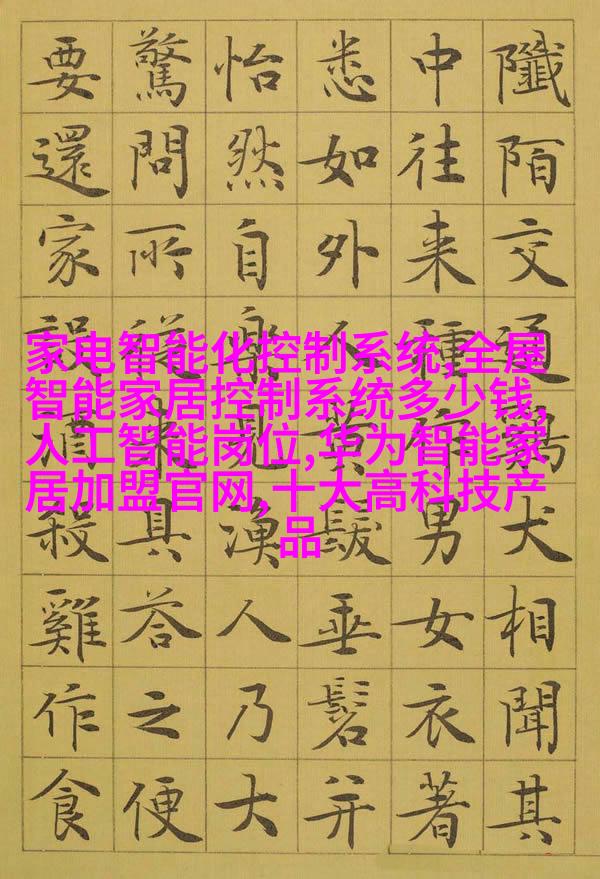 陌交通鷄犬相聞其
中往来種作男女衣著
悉如外人黄髮垂髫并
怡然自樂見漁人乃大
驚問所從来具答之便
要還家設酒殺雞作食
家电智能化控制系统,全屋
智能家居控制系统多少钱,
人工智能岗位,华为智能家
居加盟官网,十大高科技产
品